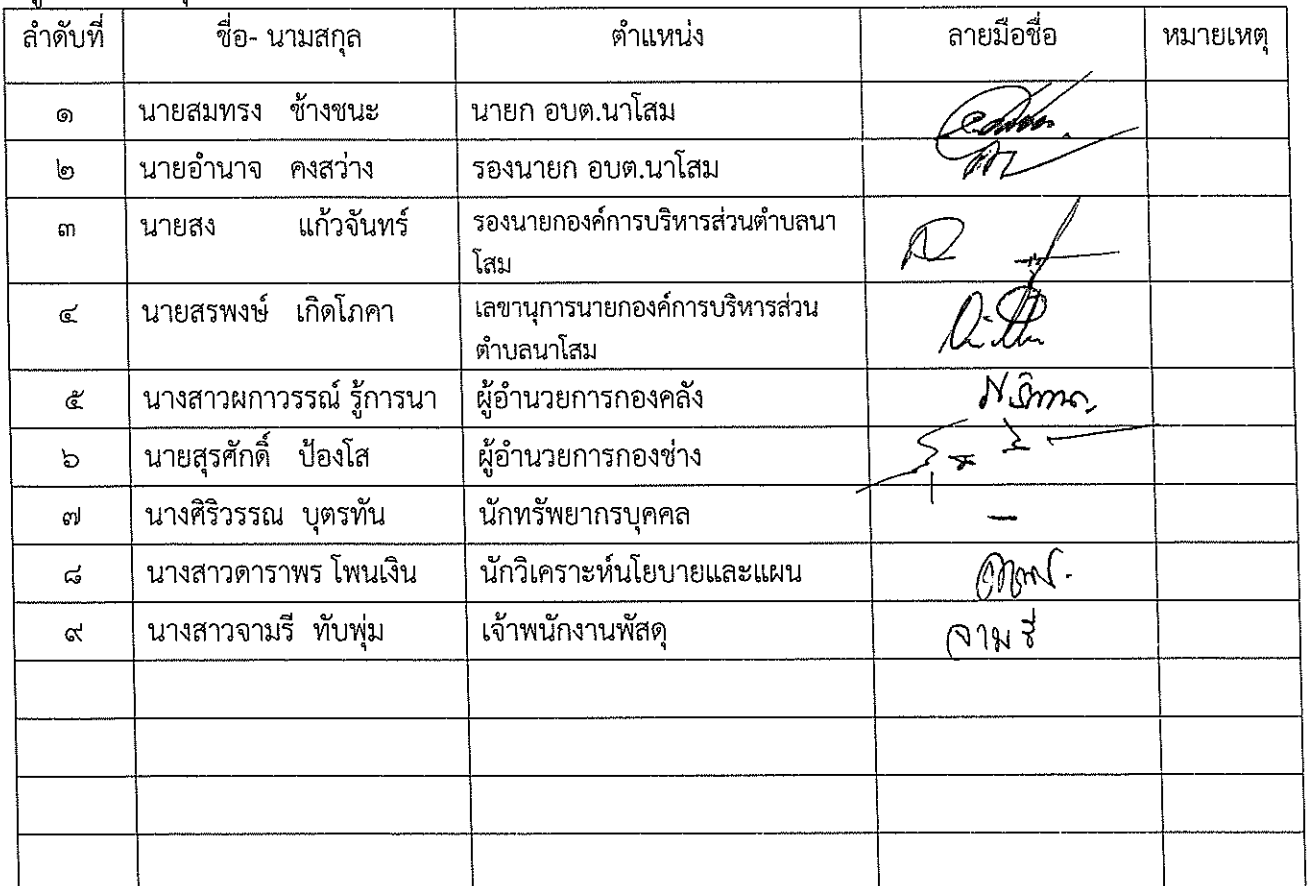 ลำดับที่ ชื่อ- นามสกุล ตำแหน่ง ลายมือชื่อ หมายเหตุ
๑ นายสมทรง ช้างชนะ นายก อบต.นาโสม
๒ นายอำนาจ คงสว่าง รองนายก อบต.นาโสม
๓ นายสง แก้วจันทร์ รองนายกองค์การบริหารส่วนตำบลนา
โสม
๔ นายสรพงษ์ เกิดโภคา เลขานุการนายกองค์การบริหารส่วน
ตำบลนาโสม
๕ นางสาวผกาวรรณ์ รู้การนา ผู้อำนวยการกองคลัง
๖ นายสุรศักดิ์ ป้องโส ผู้อำนวยการกองช่าง
๗ นางศิริวรรณ บุตรทัน นักทรัพยากรบุคคล -
๘ นางสาวดาราพร โพนเงิน นักวิเคราะห์นโยบายและแผน
๙ นางสาวจามรี ทับพุ่ม เจ้าพนักงานพัสดุ จามรี